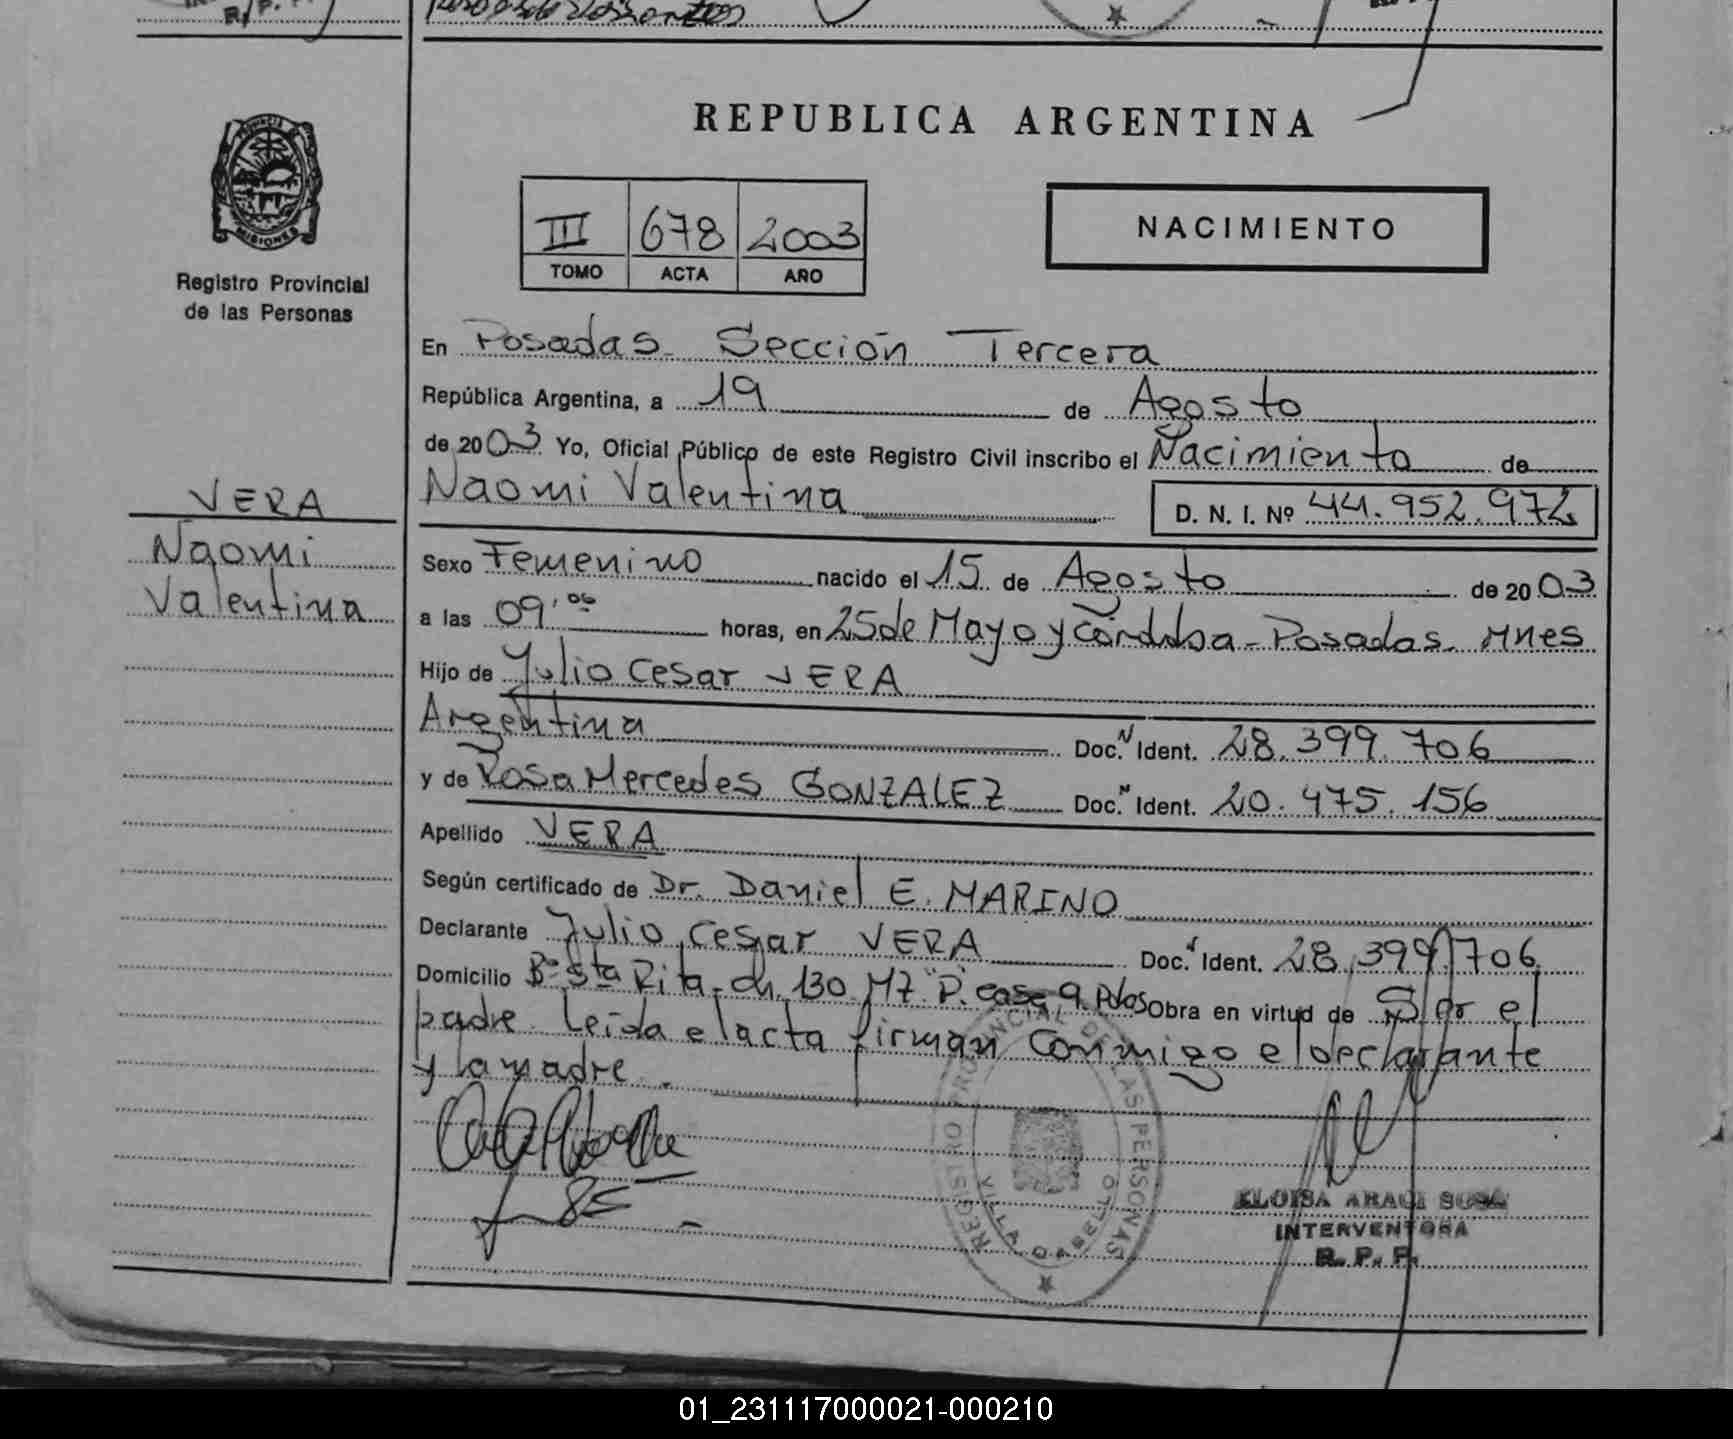 REPUBLICA ARGENTINA
PROVINCIA DE
MISIONES
Registro Provincial
de las Personas
III 678 2003
TOMO ACTA AÑO
NACIMIENTO
En Posadas Sección Tercera
República Argentina, a 19 de Agosto
de 2003 Yo, Oficial Público de este Registro Civil inscribo el Nacimiento de
Naomi Valentina D. N. I. Nº 44.952.972
VERA
Naomi
Valentina
Sexo Femenino nacido el 15 de Agosto de 2003
a las 09,06 horas, en 25 de Mayo y Córdoba - Posadas. Mnes
Hijo de Julio Cesar VERA
Argentina Doc. N Ident. 28.399.706
y de Rosa Mercedes GONZALEZ Doc. N Ident. 20.475.156
Apellido VERA
Según certificado de Dr. Daniel E. MARINO
Declarante Julio Cesar VERA Doc. Ident. 28.399.706
Domicilio Bº Sta Rita - ch. 130 Mz "P". casa 9. Pdas Obra en virtud de Ser el
padre. Leida el acta firman conmigo el declarante
y la madre.
REGISTRO PROVINCIAL DE LAS PERSONAS
VILLA
ELOISA ARACI SOSA
INTERVENTORA
R. P. P.
01_231117000021-000210